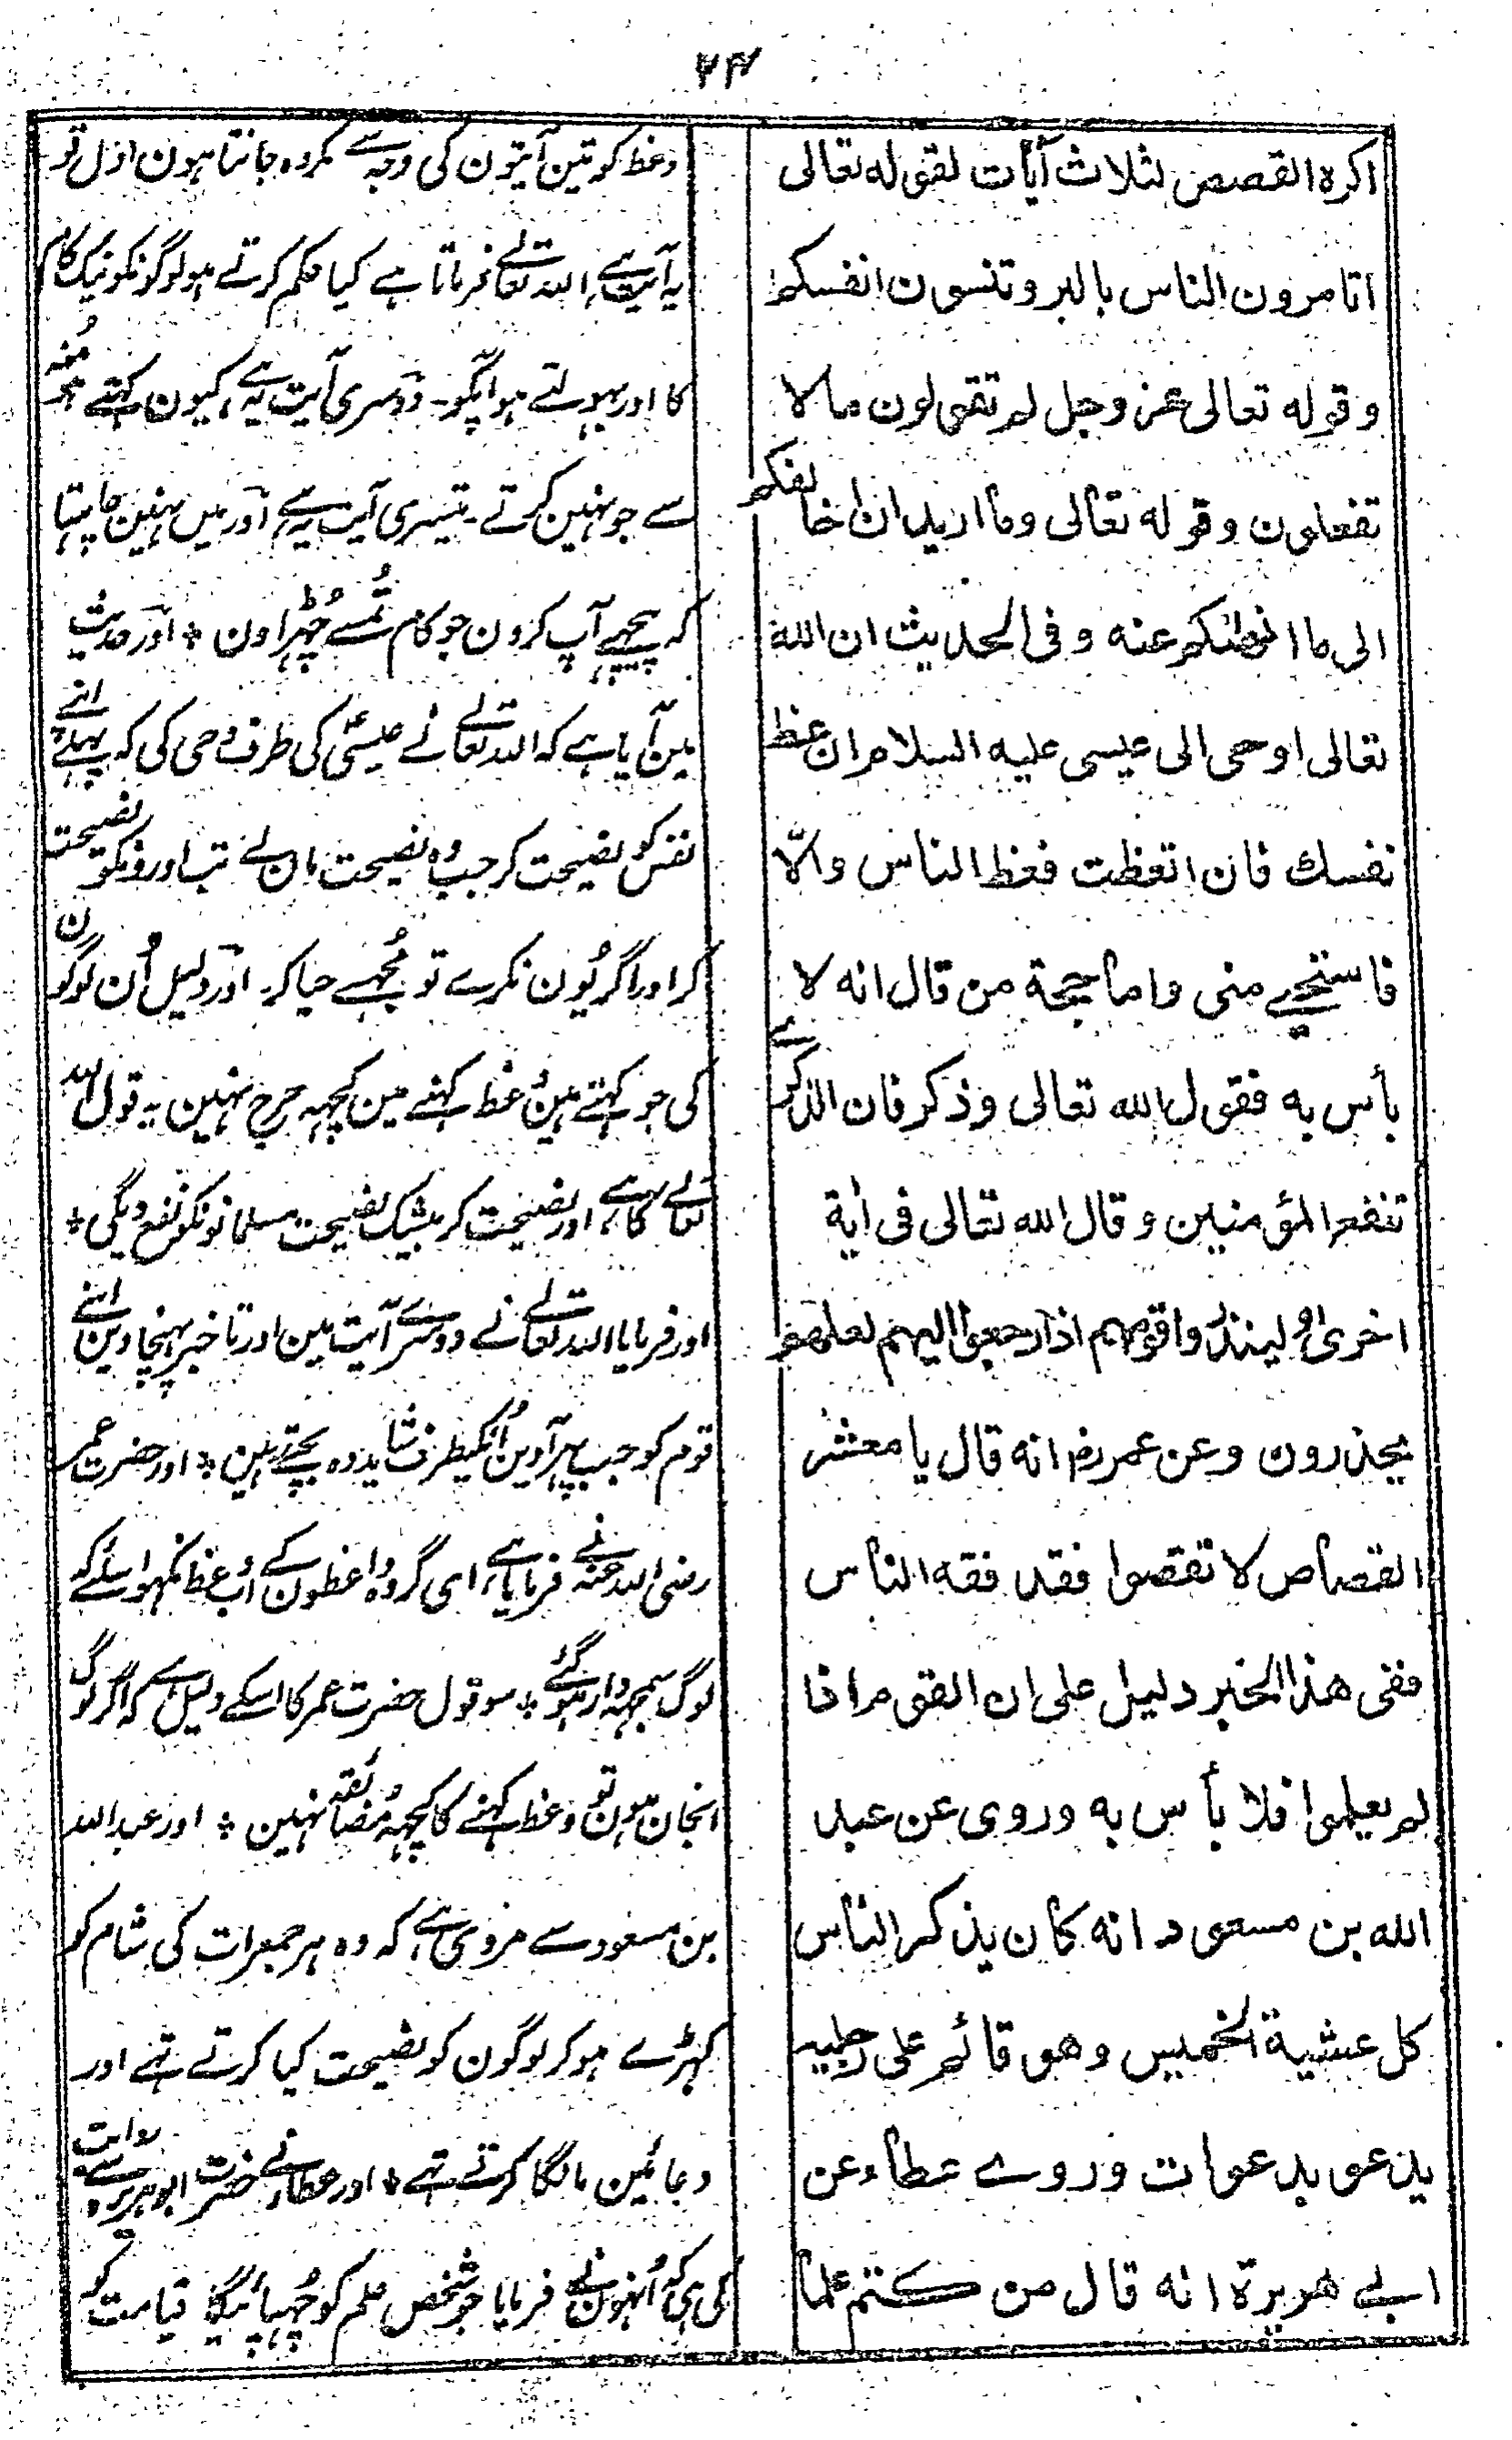 ۲۴
اكره القصص لثلاث آيات لقوله تعالى
اتامرون الناس بالبر وتنسون انفسكم
وقوله تعالى عز وجل لم تقولون ما لا
تفعلون وقوله تعالى وما اريد ان اخالفكم
الى ما انهٰىكم عنه وفى الحديث ان الله
تعالى اوحى الى عيسى عليه السلام ان عظ
نفسك فان اتعظت فعظ الناس والّا
فاستحيي منى واما حجة من قال انه لا
بأس به فقول الله تعالى وذكر فان الذكرے
تنفع المؤمنين وقال الله تعالى فى أية
اخرى ولينذروا قومهم اذا رجعوا اليهم لعلهم
يحذرون وعن عمر رض انه قال يا معشر
القصاص لا تقصوا فقد فقه الناس
ففى هذا الخبر دليل على ان القوم اذا
لم يعلموا فلا بأس به وروى عن عبد
الله بن مسعود انه كان يذكر الناس
كل عشية الخميس وهو قائم على رجليه
يدعو بدعوات وروے عطاء عن
ابے هريرة انه قال من كتم علما
وعظ کو تین آیتون کی وجہ سے مکروہ جانتا ہون اوّل تو
یہ آیت ہے اللہ تعالے فرماتا ہے کیا حکم کرتے ہو لوگونکو نیک کام
کا اور بہولتے ہو اپکو۔ دوسری آیت یہ ہے کیون کہتے ہو مُنہ
سے جو نہین کرتے۔ تیسری آیت یہ ہے اور میں نہین چاہتا
کہ پیچھے آپ کرون جو کام تُمسے چُہڑاون ٭ اور حدیث
مین آیا ہے کہ اللہ تعالے نے عیسیٰؑ کی طرف وحی کی کہ پہلے اپنے
نفس کو نصیحت کر جب وہ نصیحت مان لے تب اورونکو نصیحت
کر اور اگر یُون نکرے تو مُجہسے حیا کر۔ اور دلیل اُن لوگون
کی جو کہتے ہین وعظ کہنے مین کچہہ حرج نہین یہ قول اللہ
تعالے کا ہے اور نصیحت کر بیشک نصیحت مسلمانونکو نفع دیگی ٭
اور فرمایا اللہ تعالے نے دوسرے آیت مین اور تا خبر پہنچاوین اپنے
قوم کو جب پہر آوین اُنکیطرف شاید وہ بچتے رہین ٭ اور حضرت عمر
رضی اللہ عنہ نے فرمایا ہے ای گروہ واعظون کے اب وعظ نکہو اسلئے کہ
لوگ سمجہہ دار ہوگئے ٭ سو قول حضرت عمر کا اسکے دلیل ہے کہ اگر لوگ
انجان ہون تو وعظ کہنے کا کچہہ مُضائقہ نہین ٭ اور عبداللہ
بن مسعود سے مروی ہے کہ وہ ہر جمعرات کی شام کو
کہڑے ہو کر لوگون کو نصیحت کیا کرتے تہے اور
دعائین مانگا کرتے تہے ٭ اور عطا نے حضرت ابو ہریرہ سے روایت
کی ہی کہ اُنہونے فرمایا جو شخص علم کو چُہپائیگا قیامت کو